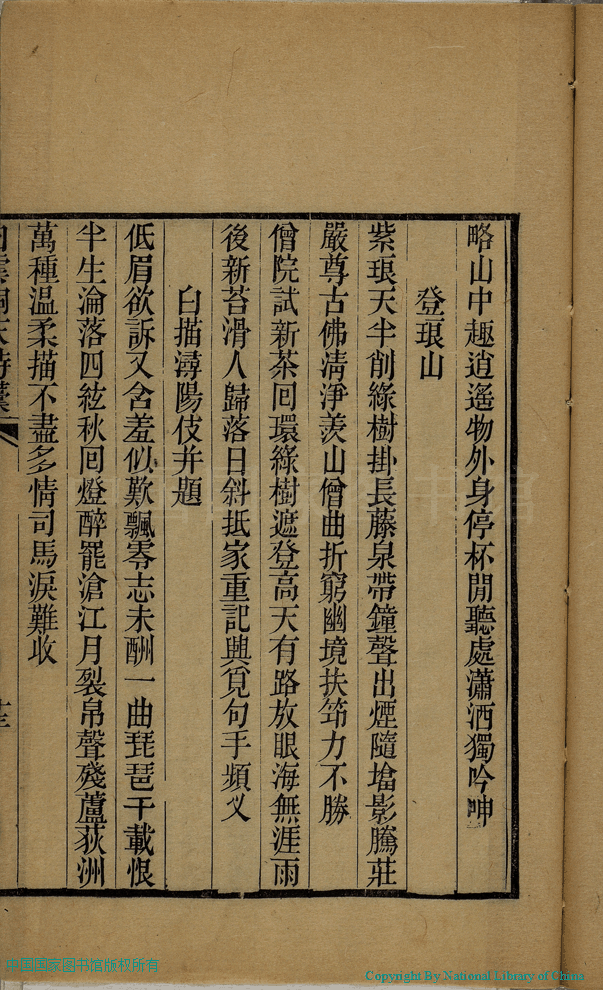 略山中趣逍遙物外身停杯閒聽處瀟洒獨吟呻
登琅山
紫琅天半削綠樹掛長藤泉帶鐘聲出煙隨塔影騰莊
嚴尊古佛淸淨羨山僧曲折窮幽境扶笻力不勝
僧院試新茶回環綠樹遮登高天有路放眼海無涯雨
後新苔滑人歸落日斜抵家重記興覓句手頻叉
白描潯陽伎幷題
低眉欲訴又含羞似歎飄零志未酬一曲琵琶千載恨
半生淪落四絃秋回燈醉罷滄江月裂帛聲殘蘆荻洲
萬種溫柔描不盡多情司馬淚難收
十三
中国国家图书馆版权所有
Copyright By National Library of China